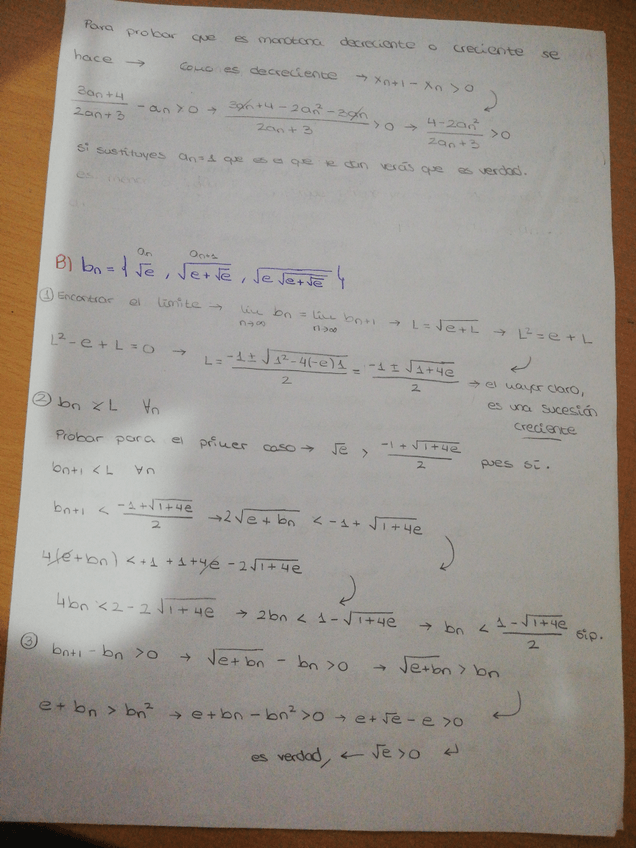 Para probar que es monotona decreciente o creciente se
hace → Como es decreciente → xn+1 - xn > 0
3an+4/2an+3 - an > 0 → 3an+4-2an²-3an/2an+3 > 0 → 4-2an²/2an+3 > 0
si sustituyes an=1 que es que te dan verás que es verdad.
an an+1
B) bn = { √e, √(e+√e), √(e√(e+√e)) }
① Encontrar el límite → lim n→∞ bn = lim n→∞ bn+1 → L = √(e+L) → L² = e + L
L² - e + L = 0 → L = -1 ± √(1²-4(-e)1)/2 = -1 ± √(1+4e)/2 → el mayor claro,
es una sucesión
creciente
② bn < L ∀n
Probar para el primer caso → √e, -1+√(1+4e)/2 pues sí.
bn+1 < L ∀n
bn+1 < -1+√(1+4e)/2 → 2√(e+bn) < -1 + √(1+4e)
4(e+bn) < +1 + 1+4e - 2√(1+4e)
4bn < 2 - 2√(1+4e) → 2bn < 1 - √(1+4e) → bn < 1-√(1+4e)/2 sip.
③ bn+1 - bn > 0 → √(e+bn) - bn > 0 → √(e+bn) > bn
e + bn > bn² → e + bn - bn² > 0 → e + √e - e > 0
es verdad, ← √e > 0